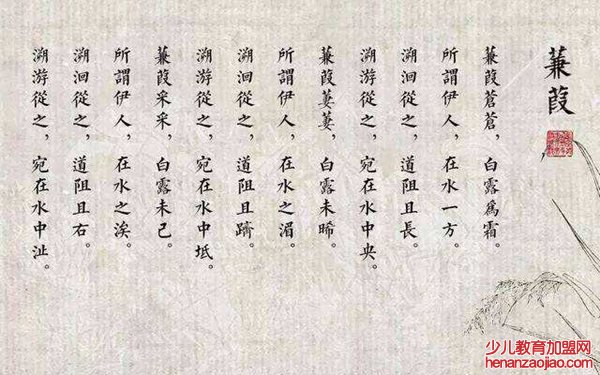 蒹葭
蒹葭蒼蒼，白露爲霜。
所謂伊人，在水一方。
溯洄從之，道阻且長。
溯游從之，宛在水中央。
蒹葭萋萋，白露未晞。
所謂伊人，在水之湄。
溯洄從之，道阻且躋。
溯游從之，宛在水中坻。
蒹葭采采，白露未已。
所謂伊人，在水之涘。
溯洄從之，道阻且右。
溯游從之，宛在水中沚。
少儿教育加盟网
henanzaojiao.com